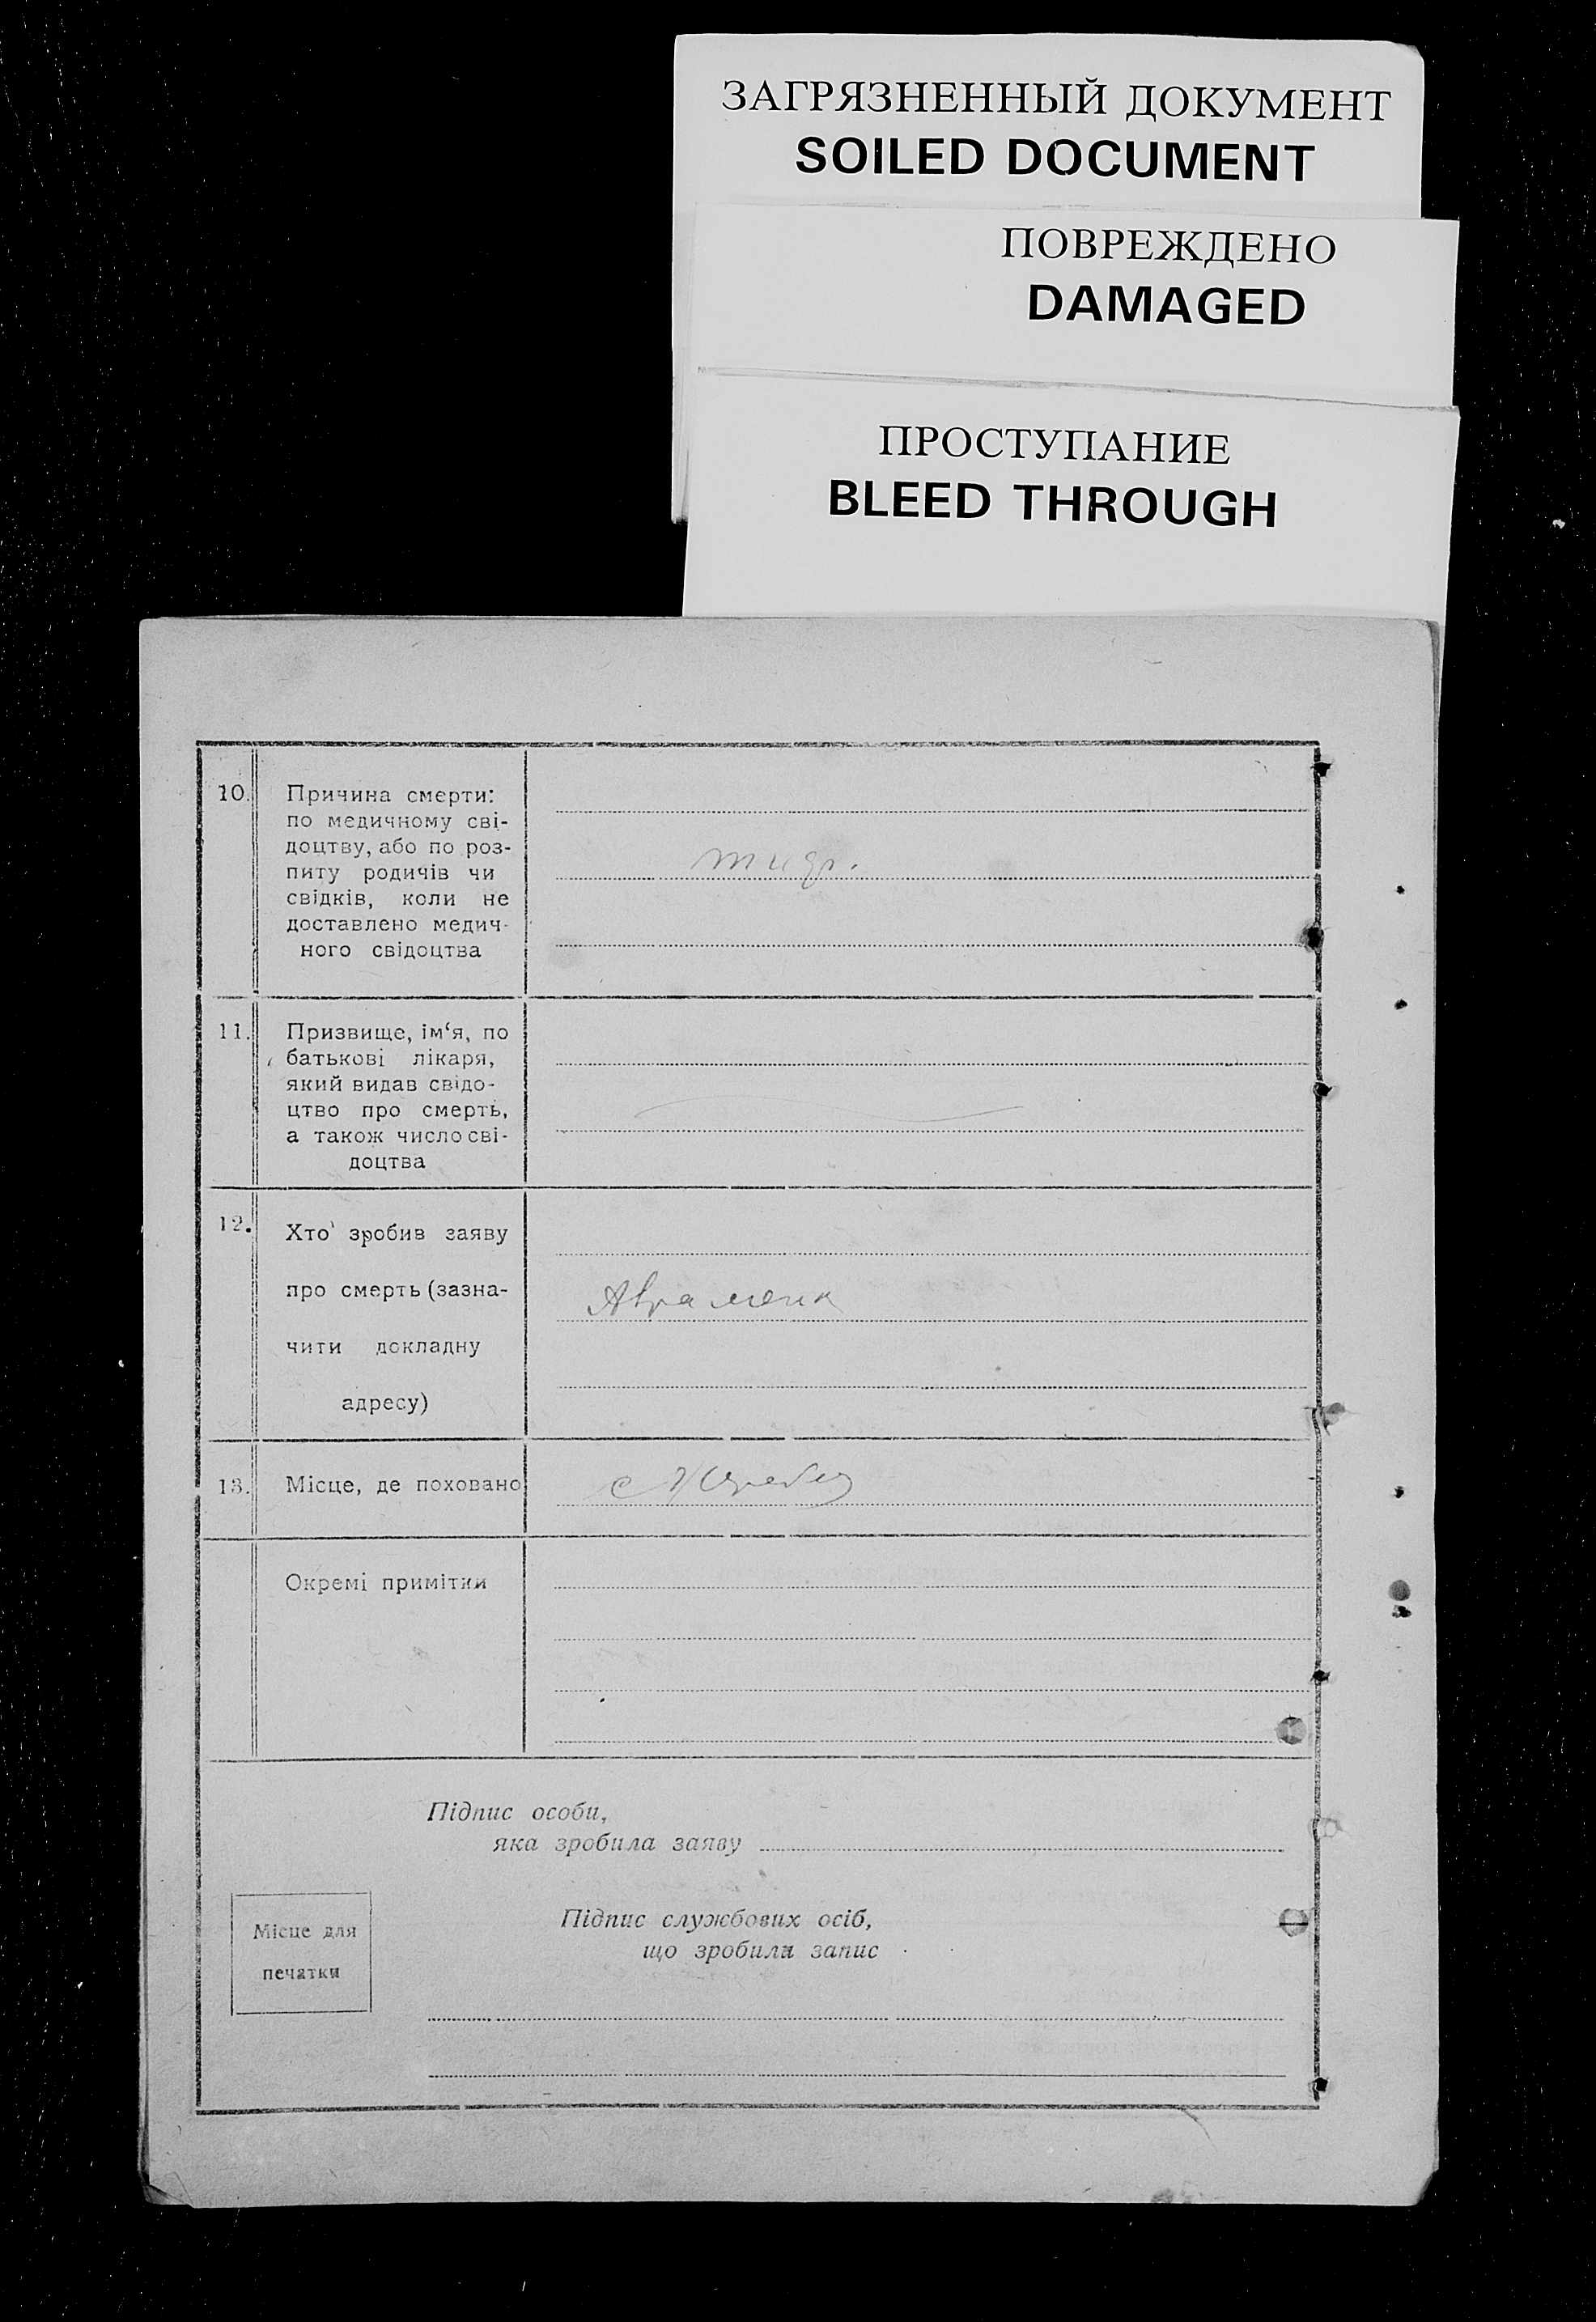 ЗАГРЯЗНЕННЫЙ ДОКУМЕНТ
SOILED DOCUMENT
ПОВРЕЖДЕНО
DAMAGED
ПРОСТУПАНИЕ
BLEED THROUGH
10. Причина смерти:
по медичному сві-
доцтву, або по роз-
питу родичів чи
свідків, коли не
доставлено медич-
ного свідоцтва
тиф.
11. Призвище, ім‘я, по
батькові лікаря,
який видав свідо-
цтво про смерть,
а також число сві-
доцтва
12. Хто зробив заяву
про смерть (зазна-
чити докладну
адресу)
Авраменк
13. Місце, де поховано
с
Окремі примітки
Підпис особи,
яка зробила заяву
Місце для
печатки
Підпис службових осіб,
що зробили запис